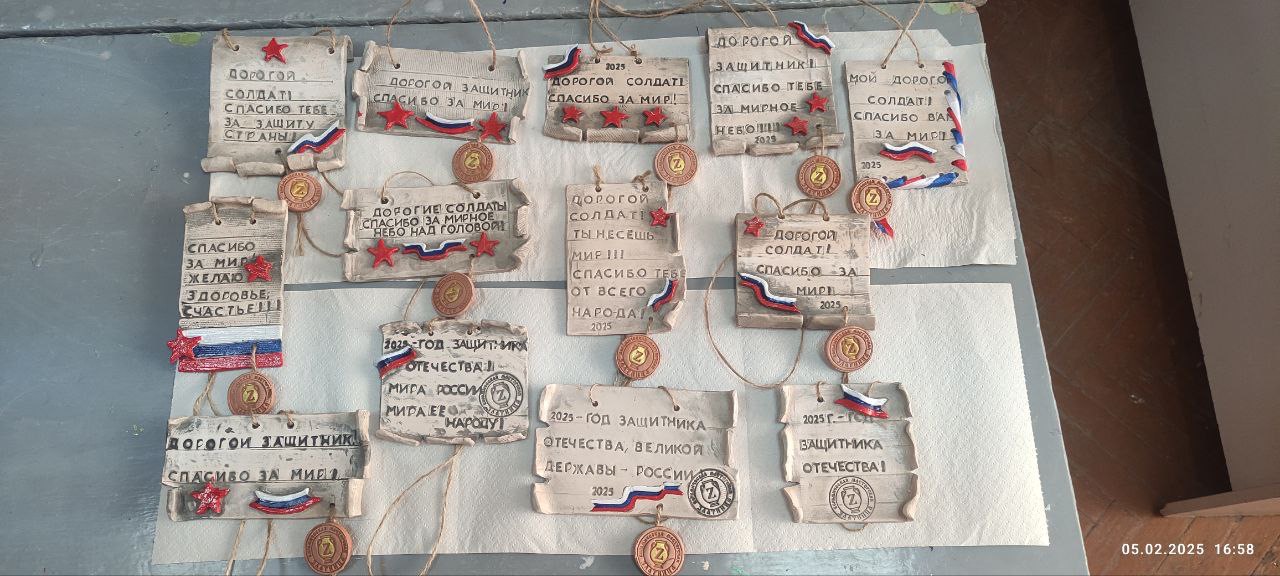 ДОРОГОЙ
СОЛДАТ!
СПАСИБО ТЕБЕ
ЗА ЗАЩИТУ
СТРАНЫ!
ДОРОГОЙ ЗАЩИТНИК
СПАСИБО ЗА МИР!
2025
ДОРОГОЙ СОЛДАТ!
СПАСИБО ЗА МИР!
ДОРОГОЙ
ЗАЩИТНИК!
СПАСИБО ТЕБЕ
ЗА МИРНОЕ
НЕБО!!!!
2025
МОЙ ДОРОГОЙ
СОЛДАТ!
СПАСИБО ВАМ
ЗА МИР!
2025
СПАСИБО
ЗА МИР
ЖЕЛАЮ
ЗДОРОВЬЕ,
СЧАСТЬЕ!!!!
ДОРОГИЕ СОЛДАТЫ
СПАСИБО ЗА МИРНОЕ
НЕБО НАД ГОЛОВОЙ!
ДОРОГОЙ
СОЛДАТ!
ТЫ НЕСЕШЬ
МИР!!!
СПАСИБО ТЕБЕ
ОТ ВСЕГО
НАРОДА!
2025
ДОРОГОЙ
СОЛДАТ!
СПАСИБО ЗА
МИР!!
2025
ДОРОГОЙ ЗАЩИТНИК!
СПАСИБО ЗА МИР!
2025-ГОД ЗАЩИТНИКА
ОТЕЧЕСТВА!!
МИРА РОССИИ
МИРА ЕЕ
НАРОДУ!
Z
2025-ГОД ЗАЩИТНИКА
ОТЕЧЕСТВА, ВЕЛИКОЙ
ДЕРЖАВЫ - РОССИИ
2025
Z
2025 Г. - ГОД
ЗАЩИТНИКА
ОТЕЧЕСТВА!
Z
Z
Z
Z
Z
Z
Z
Z
Z
Z
Z
Z
05.02.2025 16:58